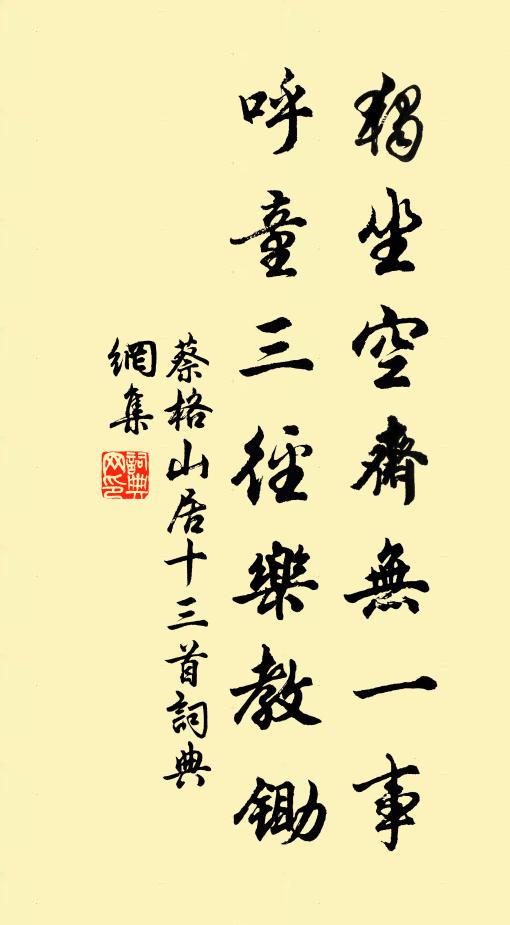 獨坐空齋無一事
呼童三徑樂教鋤
蔡格山居十三首詞典
網集
詞典網印